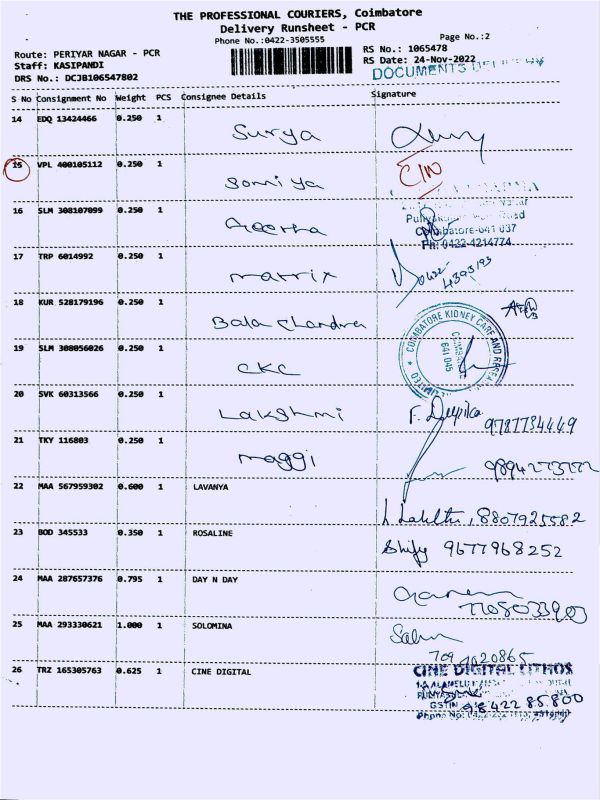 THE PROFESSIONAL COURIERS, Coimbatore
Delivery Runsheet - PCR
Phone No.:0422-3505555
Page No.:2
Route: PERIYAR NAGAR - PCR
RS No.: 1065478
Staff: KASIPANDI
RS Date: 24-Nov-2022
DRS No.: DCJB106547802
DOCUMENTS DELIVERY
S No Consignment No Weight PCS Consignee Details Signature
14 EDQ 13424466 0.250 1 Surya
15 VPL 400105112 0.250 1 Somiya
16 SLM 308107099 0.250 1 Geetha
Coimbatore-641 037
Ph: 0422-4214774
17 TRP 6014992 0.250 1 matrix
0422 4393193
18 KUR 528179196 0.250 1 Bala Chandra
COIMBATORE KIDNEY CARE AND RESEA
COIMBATORE
641 045
19 SLM 308056026 0.250 1 CKC
20 SVK 60313566 0.250 1 Lakshmi
F. Deepika 9787734449
21 TKY 116803 0.250 1 maggi
22 MAA 567959302 0.600 1 LAVANYA
L. Lalitha, 8807925582
23 BOD 345533 0.350 1 ROSALINE
9677968252
24 MAA 287657376 0.795 1 DAY N DAY
25 MAA 293330621 1.000 1 SOLOMINA
26 TRZ 165305763 0.625 1 CINE DIGITAL
CINE DIGITAL LITHOS
GSTIN
98422 85800